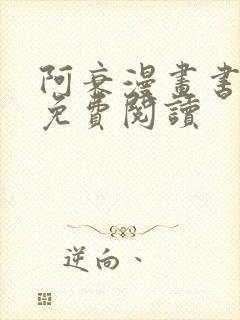 阿衰漫畫書
免費閱讀
逆向、